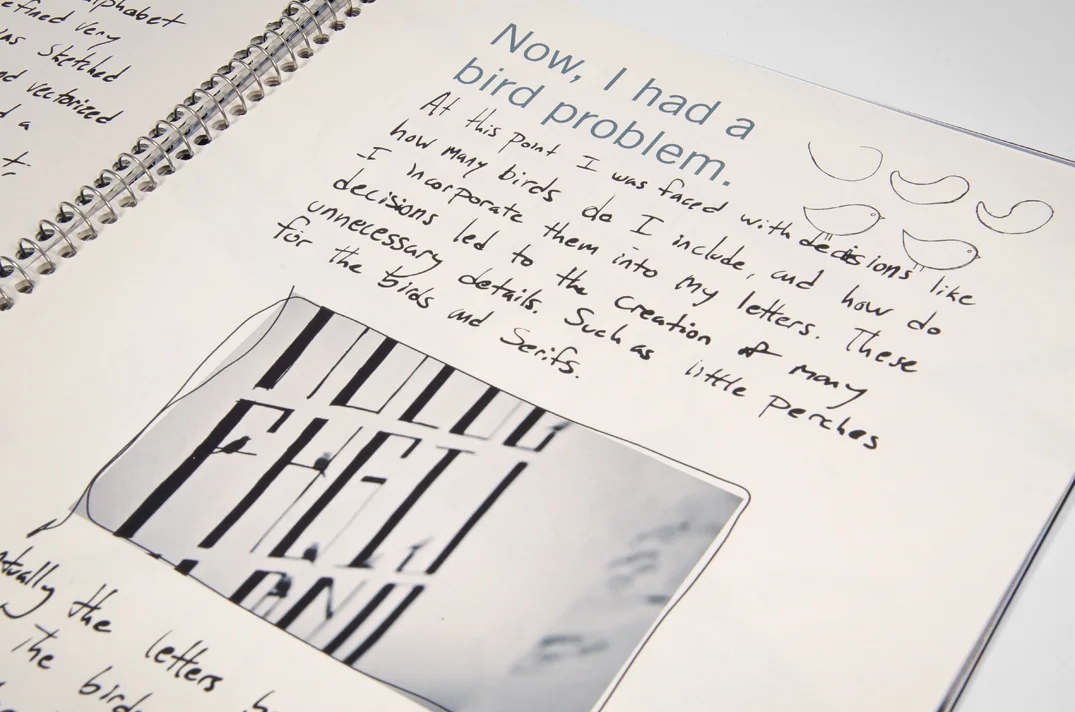 alphabet
very
sketched
vectorized
a
Now, I had a
bird problem.
At this point I was faced with decisions like
how many birds do I include, and how do
I incorporate them into my letters. These
decisions led to the creation of many
unnecessary details. Such as little perches
for the birds and Serifs.
the letters
The birds